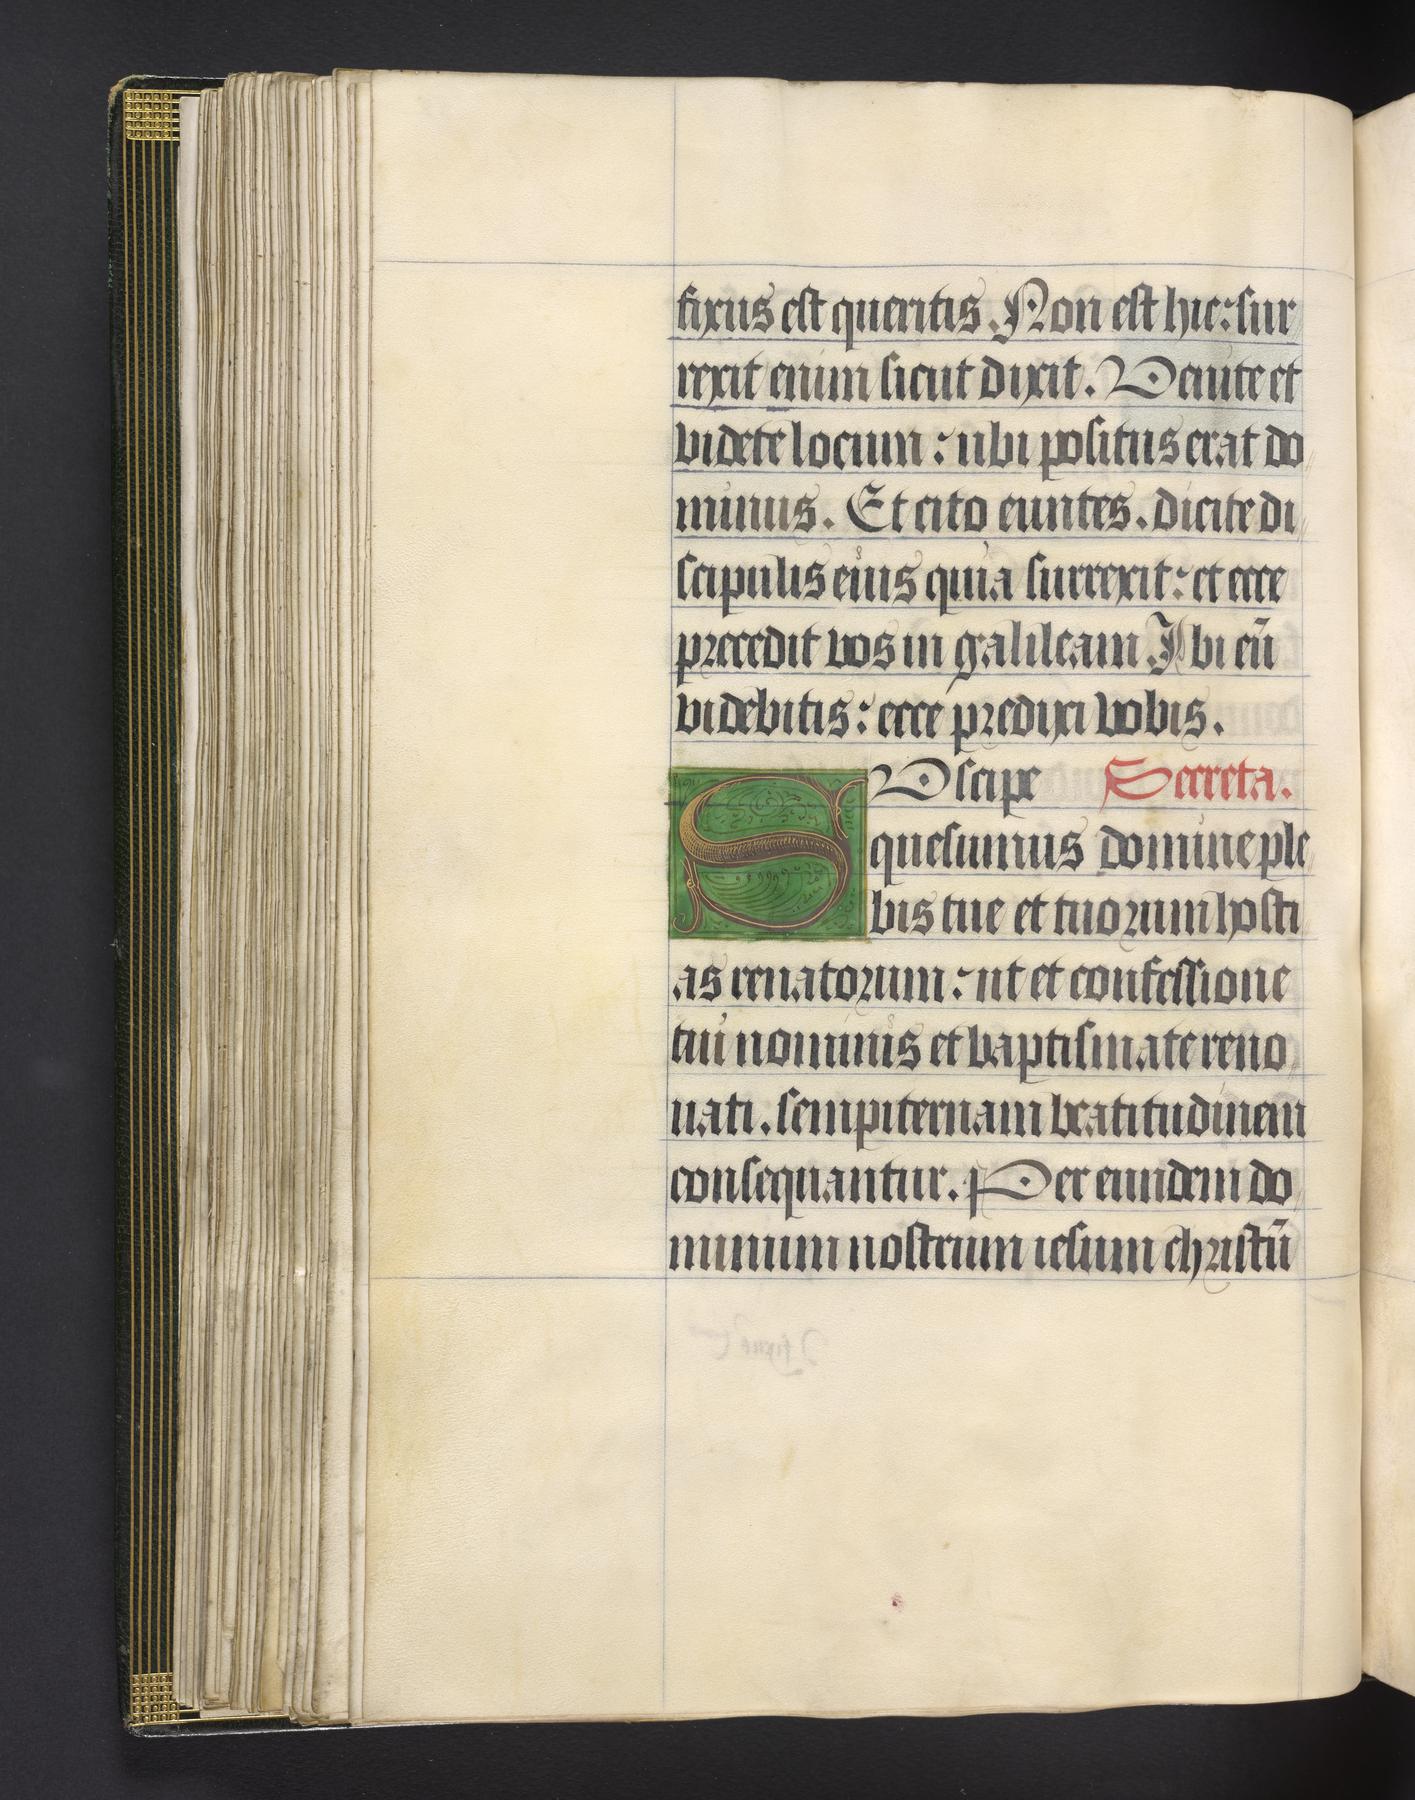 fixus est queritis. Non est hic: sur
rexit enim sicut dixit. Venite et
videte locum: ubi positus erat do
minus. Et cito euntes. dicite di
scipulis eius quia surrexit: et ecce
precedit vos in galileam Ibi eū
videbitis: ecce predixi vobis.
SVscipe Secreta.
quesumus domine ple
bis tue et tuorum hosti
as renatorum: ut et confessione
tui nominis et baptismate reno
uati. sempiternam beatitudinem
consequantur. Per eundem do
minum nostrum iesum christū